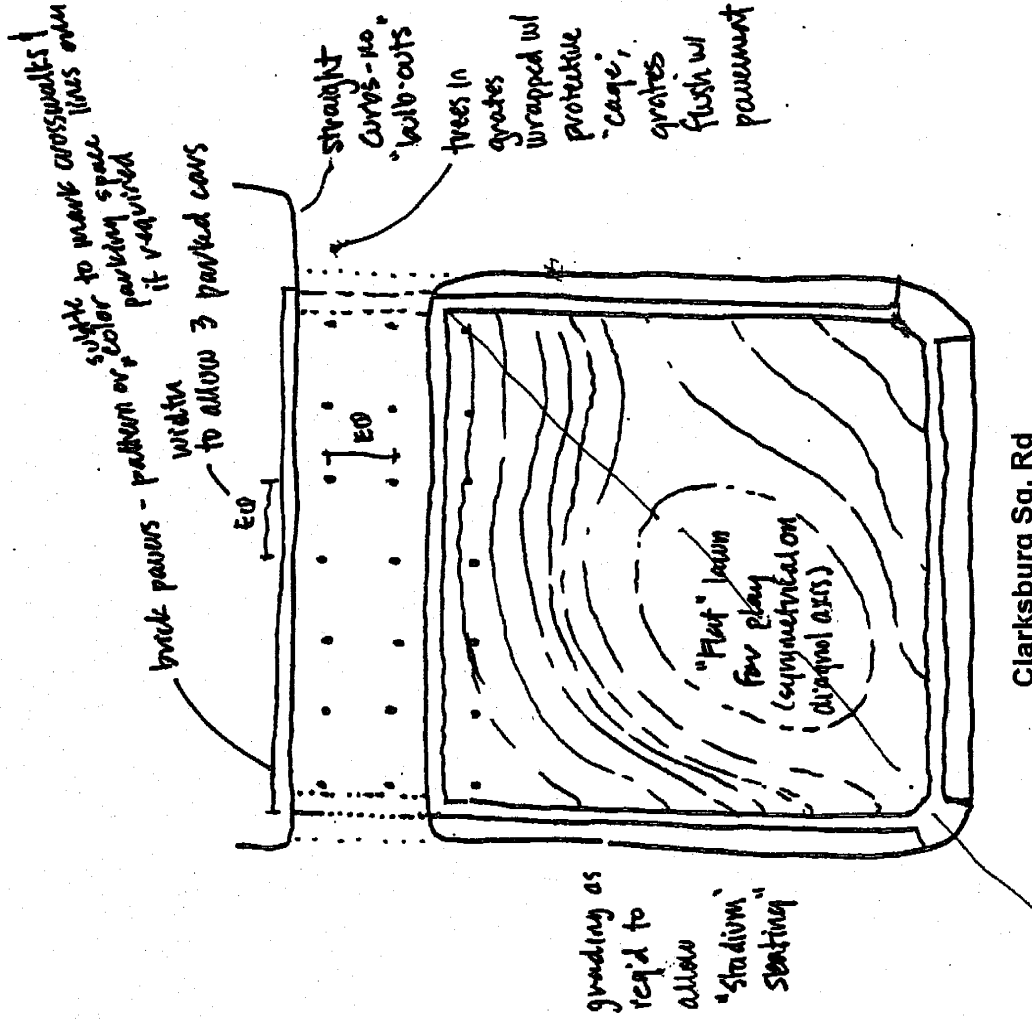 brick pavers - pattern or color
subtle to mark crosswalks &
parking space lines only
if required
width
to allow 3 parked cars
EQ
EQ
straight
curbs - no
"bulb-outs"
trees in
grates
wrapped w/
protective
"cage",
grates
flush w/
pavement
"Flat" lawn
for play
(symmetrical on
diagnol axis)
grading as
req'd to
allow
"stadium"
seating"
Clarksburg Sq. Rd